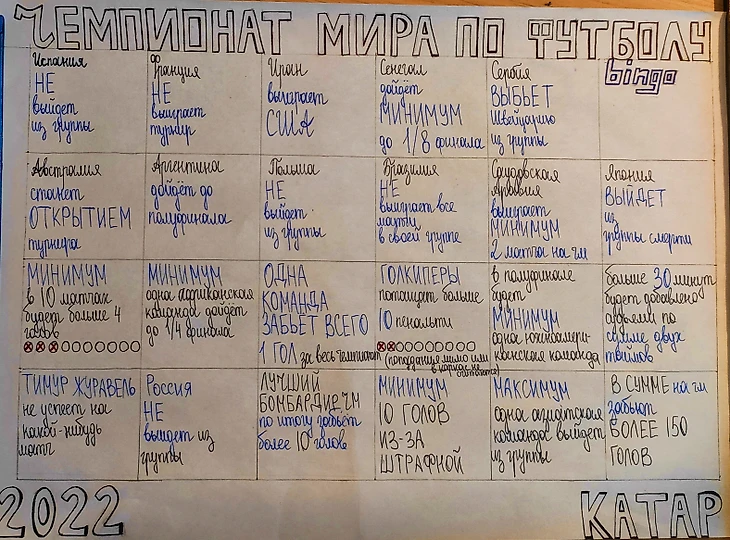 ЧЕМПИОНАТ МИРА ПО ФУТБОЛУ
bingo
Испания
НЕ
выйдет
из группы
Франция
НЕ
выиграет
турнир
Иран
выиграет
США
Сенегал
дойдёт
МИНИМУМ
до 1/8 финала
Сербия
ВЫБЬЕТ
Швейцарию
из группы
Австралия
станет
ОТКРЫТИЕМ
турнира
Аргентина
дойдёт до
полуфинала
Польша
НЕ
выйдет
из группы
Бразилия
НЕ
выиграет все
матчи
в своей группе
Саудовская
Аравия
выиграет
МИНИМУМ
2 матча на чм
Япония
ВЫЙДЕТ
из
группы смерти
МИНИМУМ
в 10 матчах
будет больше 4
голов
МИНИМУМ
одна африканская
команда дойдёт
до 1/4 финала
ОДНА
КОМАНДА
ЗАБЬЕТ ВСЕГО
1 ГОЛ за весь чемпионат
ГОЛКИПЕРЫ
потащат больше
10 пенальти
(попадания мимо или
в каркас не
считаются)
в полуфинале
будет
МИНИМУМ
одна южноамери-
канская команда
больше 30 минут
будет добавлено
судьями по
сумме двух
таймов
ТИМУР ЖУРАВЕЛЬ
не успеет на
какой-нибудь
матч
Россия
НЕ
выйдет из
группы
ЛУЧШИЙ
БОМБАРДИР ЧМ
по итогу забьет
более 10 голов
МИНИМУМ
10 ГОЛОВ
ИЗ-ЗА
ШТРАФНОЙ
МАКСИМУМ
одна азиатская
команда выйдет
из группы
В СУММЕ на чм
забьют
БОЛЕЕ 150
ГОЛОВ
2022
КАТАР